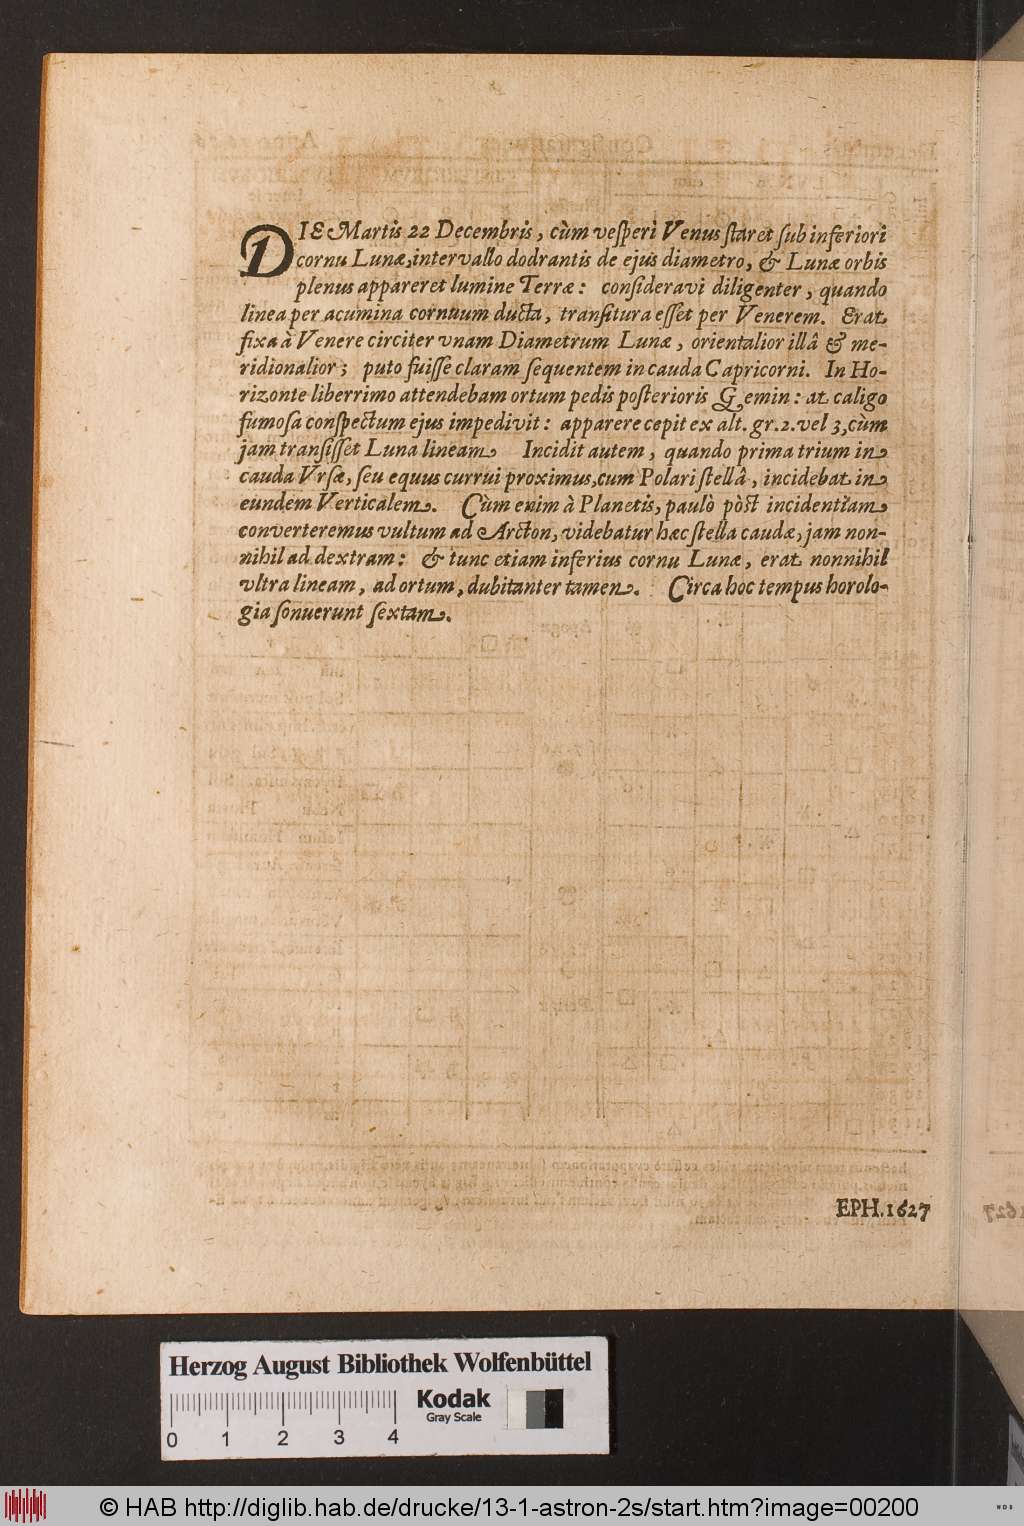 DIE Martis 22 Decembris, cùm vesperi Venus staret sub inferiori
cornu Lunæ, intervallo dodrantis de ejus diametro, & Lunæ orbis
plenus appareret lumine Terræ: consideravi diligenter, quando
linea per acumina cornuum ducta, transitura esset per Venerem. Erat
fixa à Venere circiter vnam Diametrum Lunæ, orientalior illâ & me-
ridionalior; puto fuisse claram sequentem in cauda Capricorni. In Ho-
rizonte liberrimo attendebam ortum pedis posterioris Gemin: at caligo
fumosa conspectum ejus impedivit: apparere cepit ex alt. gr. 2. vel 3, cùm
jam transisset Luna lineam. Incidit autem, quando prima trium in
cauda Vrsæ, seu equus currui proximus, cum Polari stellâ, incidebat in
eundem Verticalem. Cùm enim à Planetis, paulò pòst incidentiam
converteremus vultum ad Arcton, videbatur hæc stella caudæ, jam non-
nihil ad dextram: & tunc etiam inferius cornu Lunæ, erat nonnihil
vltra lineam, ad ortum, dubitanter tamen. Circa hoc tempus horolo-
gia sonuerunt sextam.
EPH. 1627
Herzog August Bibliothek Wolfenbüttel
Kodak
Gray Scale
0 1 2 3 4
© HAB http://diglib.hab.de/drucke/13-1-astron-2s/start.htm?image=00200